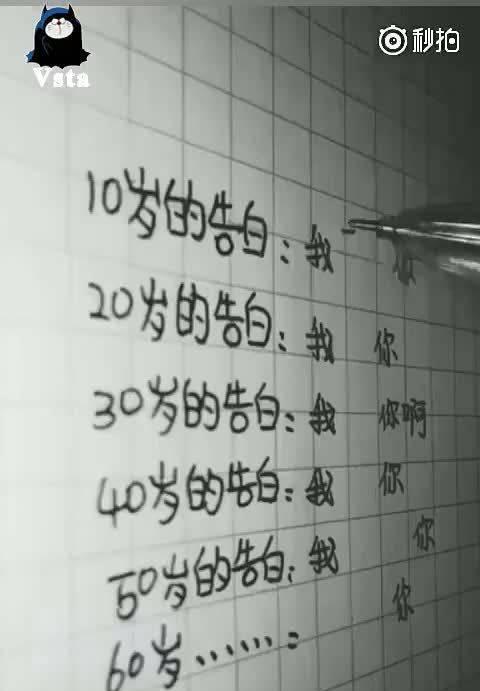 秒拍
Vsta
10岁的告白：我 你
20岁的告白：我 你
30岁的告白：我 你啊
40岁的告白：我 你
50岁的告白：我 你
60岁……： 你